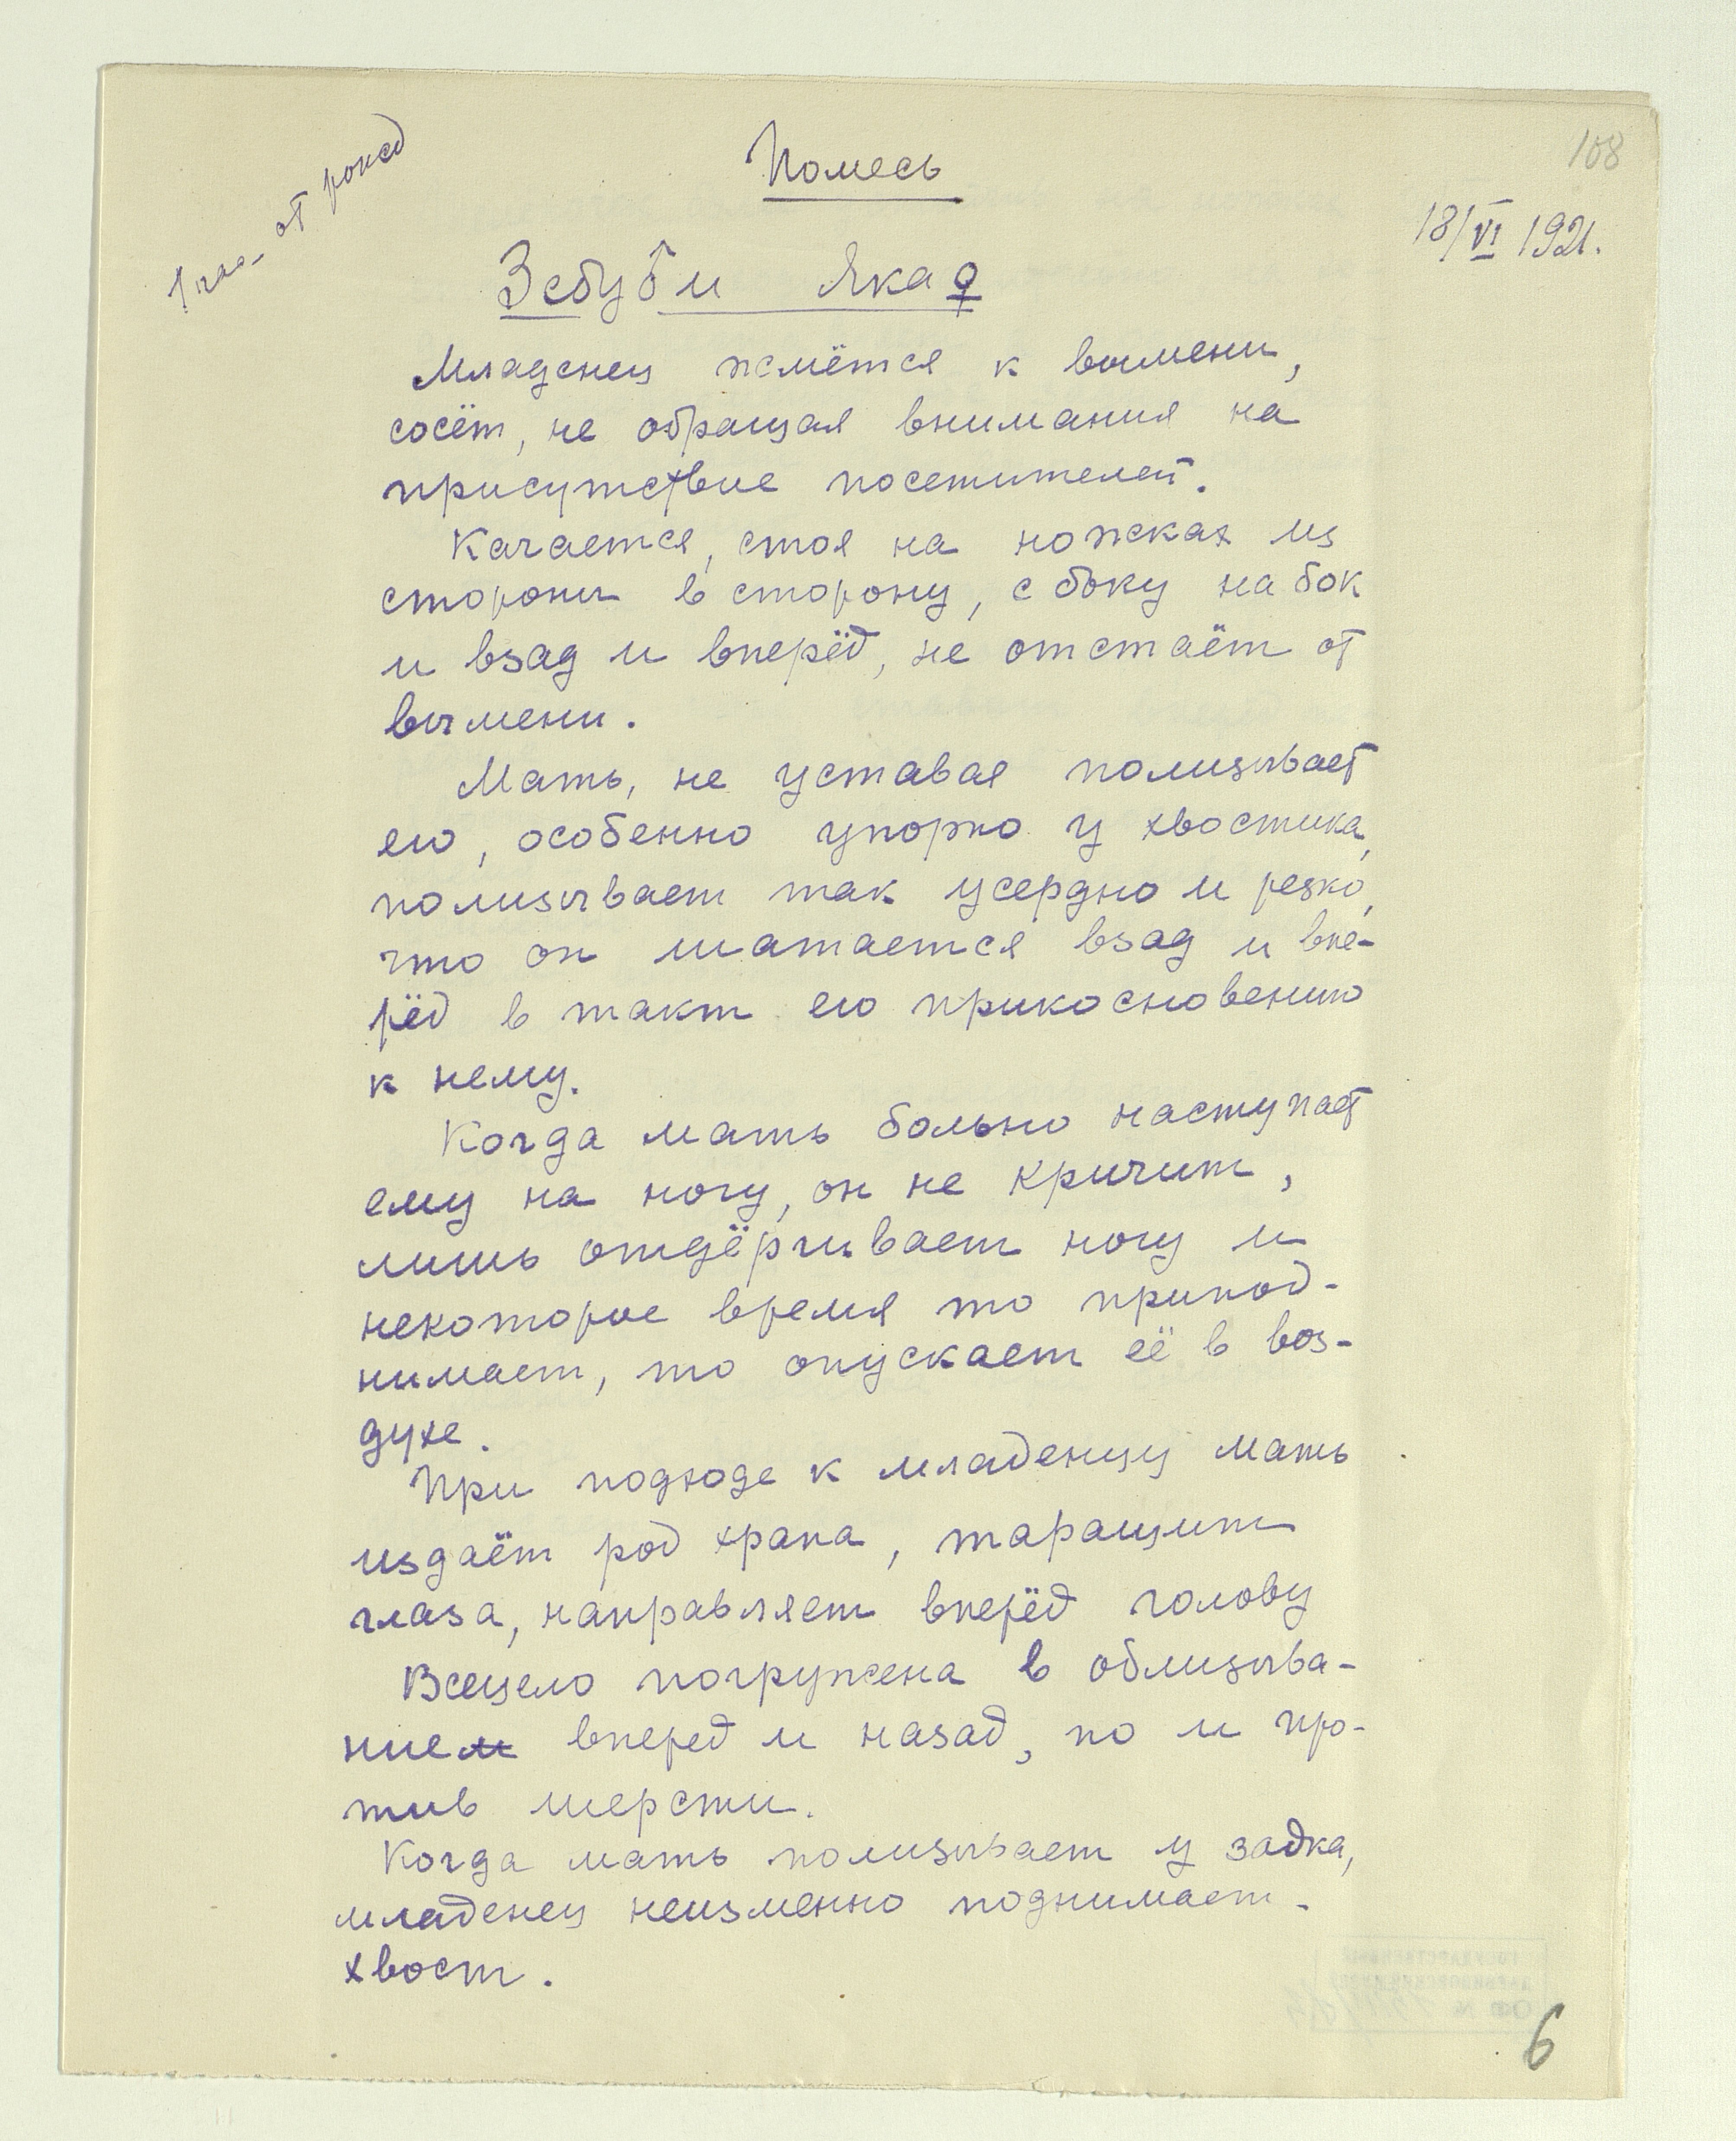 108
1 час. от рожд
Помесь
18/VI 1921.
Зебу♂ и Яка♀
Младенец жмётся к вымени,
сосёт, не обращая внимания на
присутствие посетителей.
Качается, стоя на ножках из
стороны в сторону, с боку на бок
и взад и вперёд, не отстаёт от
вымени.
Мать, не уставая полизывает
его, особенно упорно у хвостика,
полизывает так усердно и резко,
что он шатается взад и впе-
рёд в такт его прикосновению
к нему.
Когда мать больно наступает
ему на ногу, он не кричит,
лишь отдёргивает ногу и
некоторое время то припод-
нимает, то опускает её в воз-
духе.
При подходе к младенцу мать
издаёт род храпа, таращит
глаза, направляет вперёд голову
Всецело погружена в облизыва-
ние вперед и назад, по и про-
тив шерсти.
Когда мать полизывает у задка,
младенец неизменно поднимает
хвост.
6